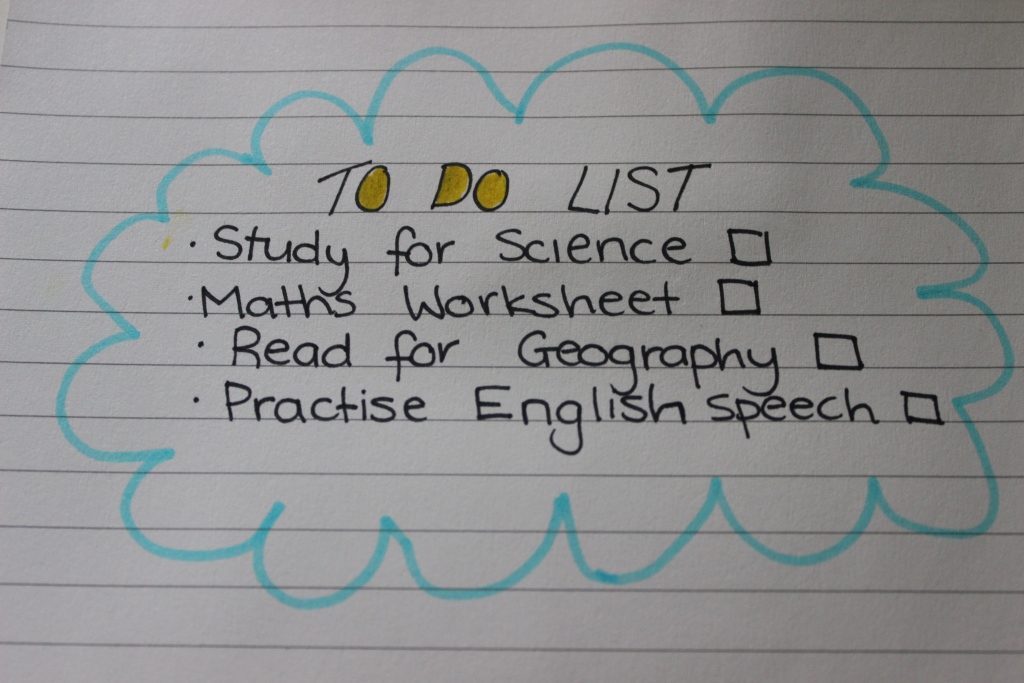 TO DO LIST
· Study for Science □
· Maths Worksheet □
· Read for Geography □
· Practise English speech □